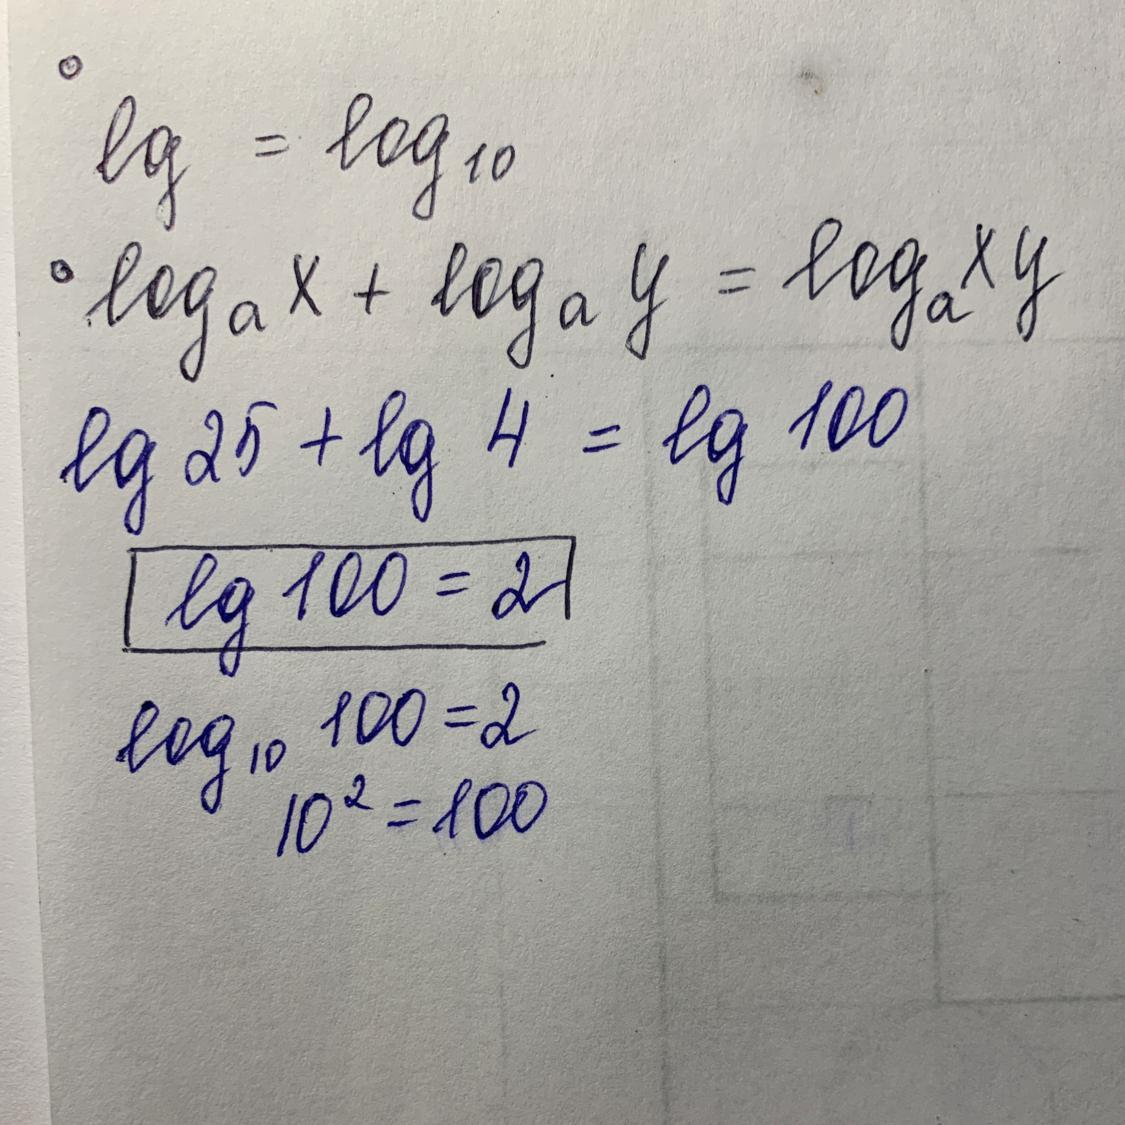 lg = log₁₀
logₐ x + logₐ y = logₐ xy
lg 25 + lg 4 = lg 100
lg 100 = 2
log₁₀ 100 = 2
10² = 100